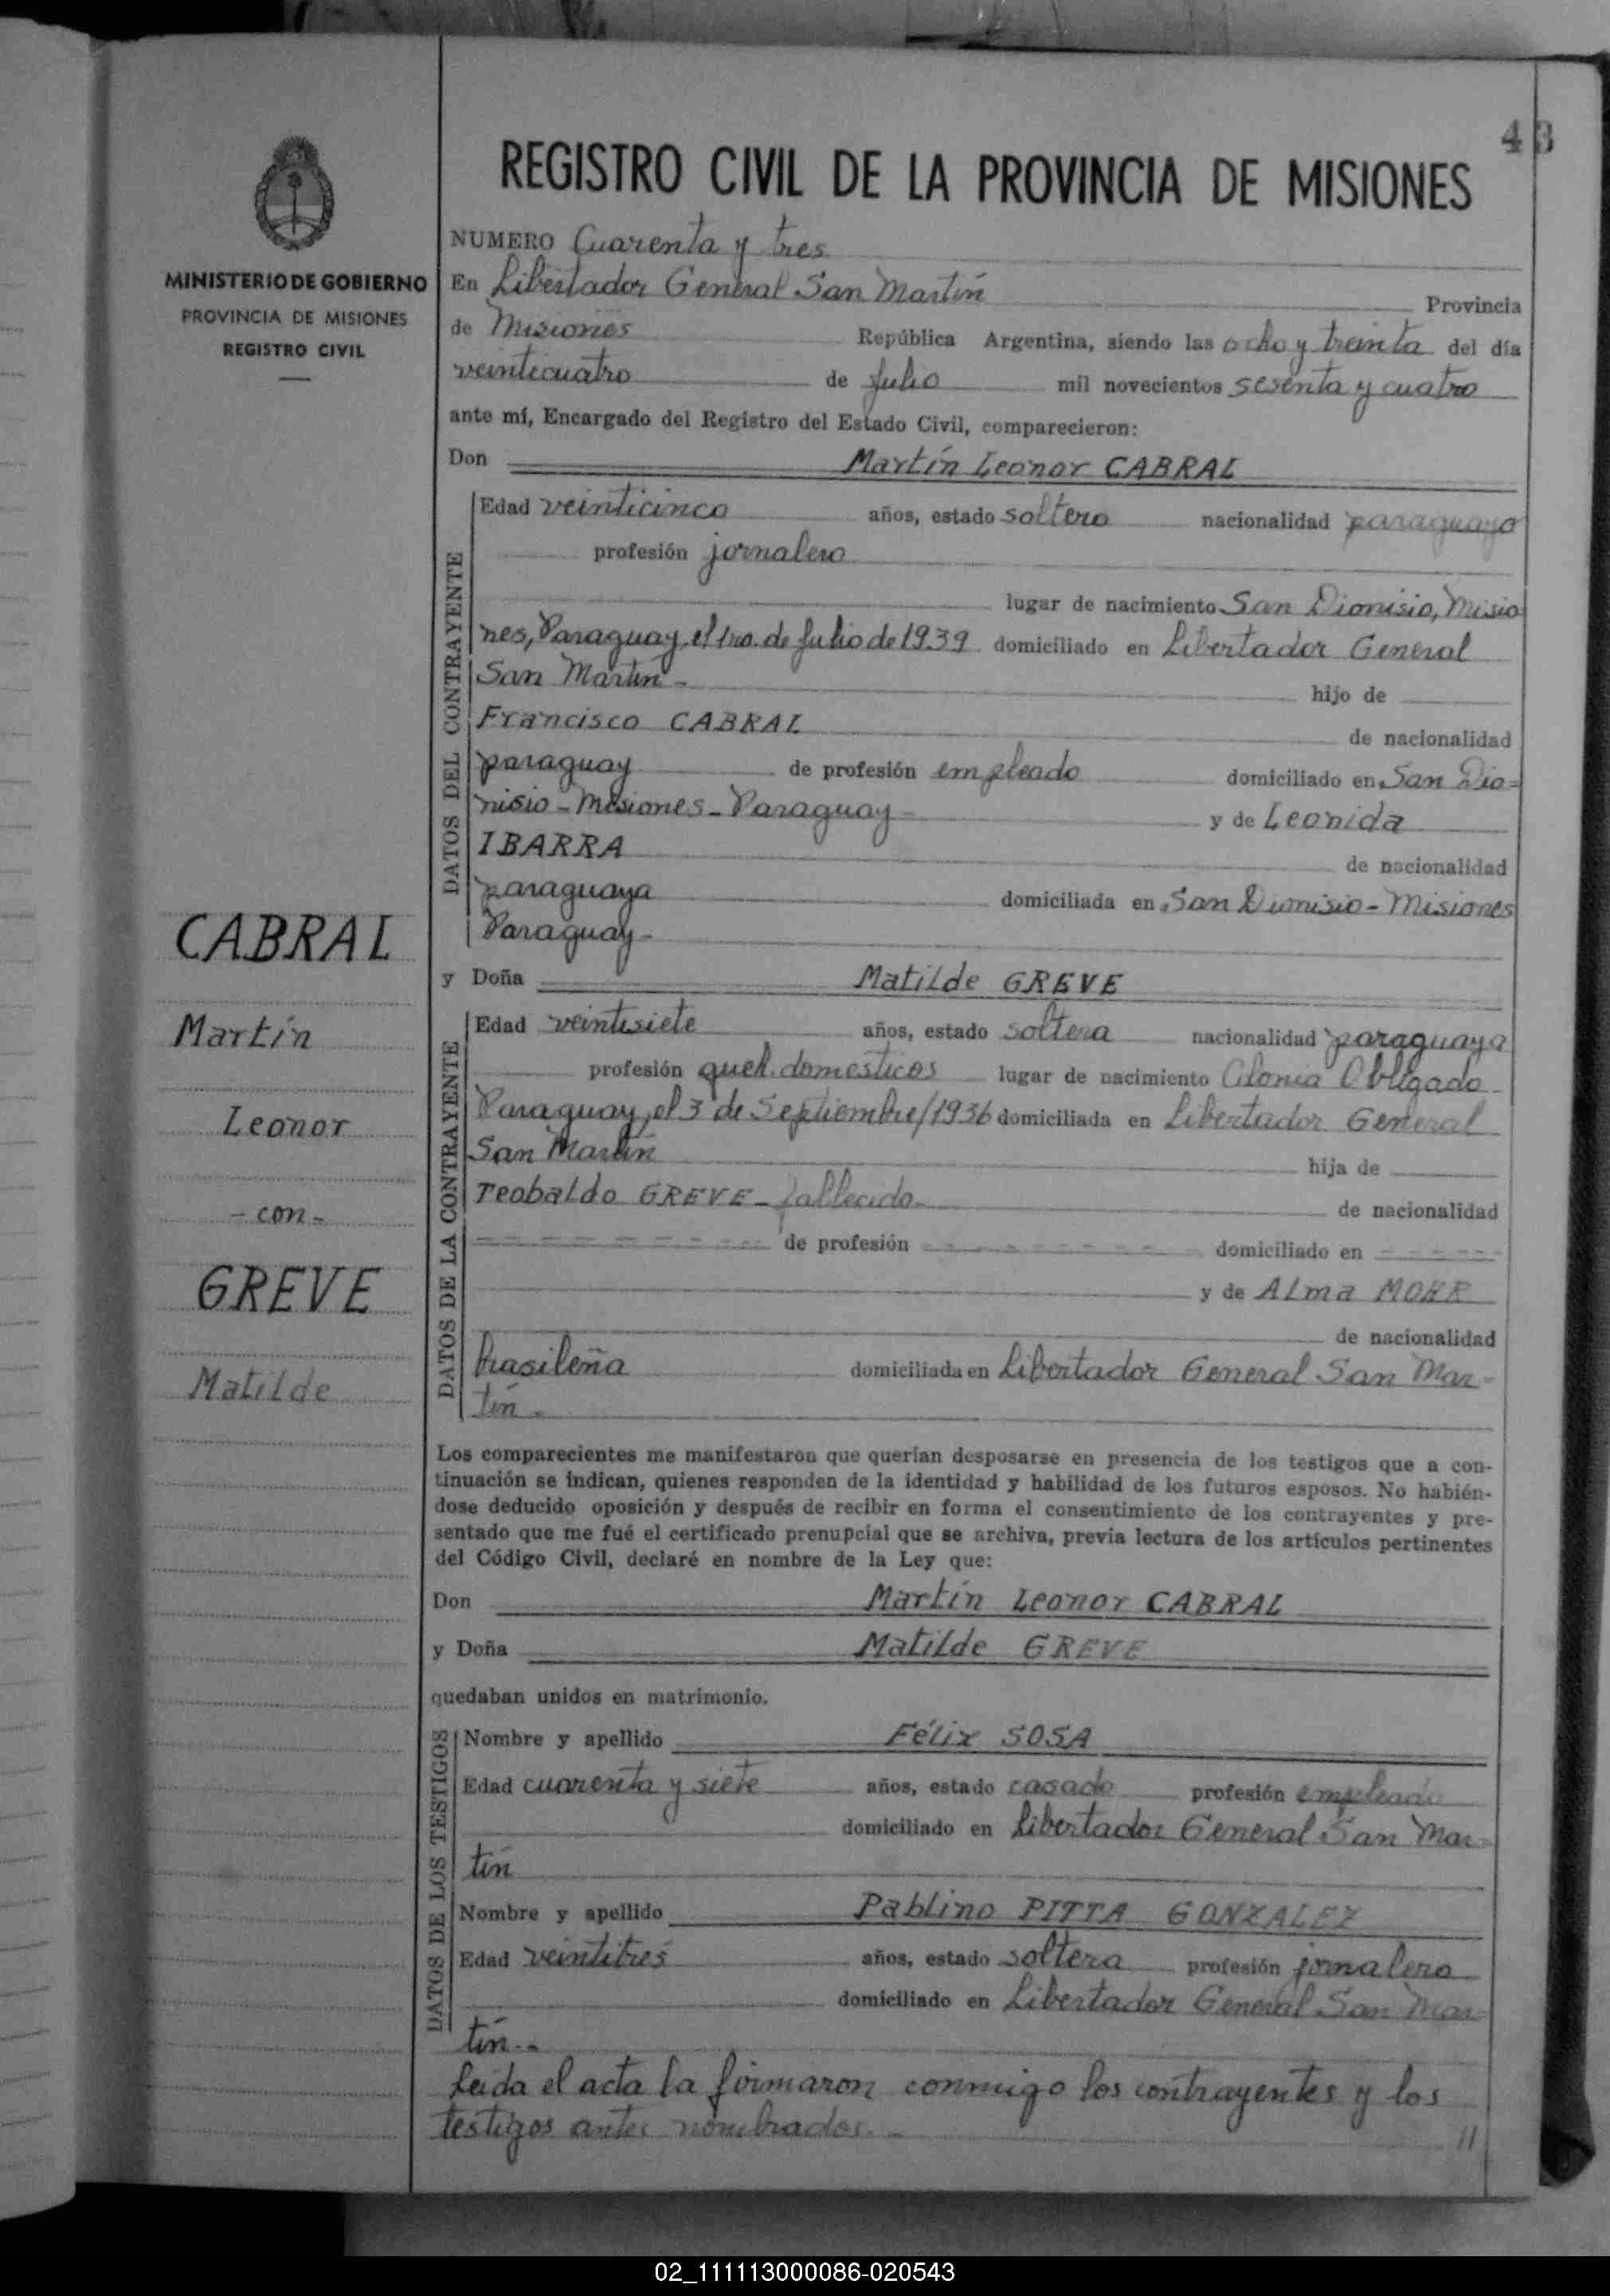 43
REGISTRO CIVIL DE LA PROVINCIA DE MISIONES
MINISTERIO DE GOBIERNO
PROVINCIA DE MISIONES
REGISTRO CIVIL
NUMERO Cuarenta y tres
En Libertador General San Martín Provincia
de Misiones República Argentina, siendo las ocho y treinta del día
veinticuatro de Julio mil novecientos sesenta y cuatro
ante mí, Encargado del Registro del Estado Civil, comparecieron:
Don Martín Leonor CABRAL
DATOS DEL CONTRAYENTE
Edad veinticinco años, estado soltero nacionalidad paraguayo
profesión jornalero
lugar de nacimiento San Dionisio, Misio
nes, Paraguay, el 1ro. de Julio de 1939 domiciliado en Libertador General
San Martín - hijo de
Francisco CABRAL de nacionalidad
paraguay de profesión empleado domiciliado en San Dio-
nisio - Misiones - Paraguay - y de Leonida
IBARRA de nacionalidad
paraguaya domiciliada en San Dionisio - Misiones
Paraguay -
CABRAL
Martín
Leonor
- con -
GREVE
Matilde
y Doña Matilde GREVE
DATOS DE LA CONTRAYENTE
Edad veintisiete años, estado soltera nacionalidad paraguaya
profesión queh. domesticos lugar de nacimiento Colonia Obligado
Paraguay, el 3 de Septiembre/1936 domiciliada en Libertador General
San Martín hija de
Teobaldo GREVE - fallecido de nacionalidad
de profesión domiciliado en
y de Alma MOHR
de nacionalidad
brasileña domiciliada en Libertador General San Mar-
tín -
Los comparecientes me manifestaron que querían desposarse en presencia de los testigos que a con-
tinuación se indican, quienes responden de la identidad y habilidad de los futuros esposos. No habién-
dose deducido oposición y después de recibir en forma el consentimiento de los contrayentes y pre-
sentado que me fué el certificado prenupcial que se archiva, previa lectura de los artículos pertinentes
del Código Civil, declaré en nombre de la Ley que:
Don Martín Leonor CABRAL
y Doña Matilde GREVE
quedaban unidos en matrimonio.
DATOS DE LOS TESTIGOS
Nombre y apellido Félix SOSA
Edad cuarenta y siete años, estado casado profesión empleado
domiciliado en Libertador General San Mar-
tín
Nombre y apellido Pablino PITTA GONZALEZ
Edad veintitrés años, estado soltera profesión jornalero
domiciliado en Libertador General San Mar
tín -.
Leida el acta la firmaron conmigo los contrayentes y los
testigos antes nombrados. - //
02_111113000086-020543